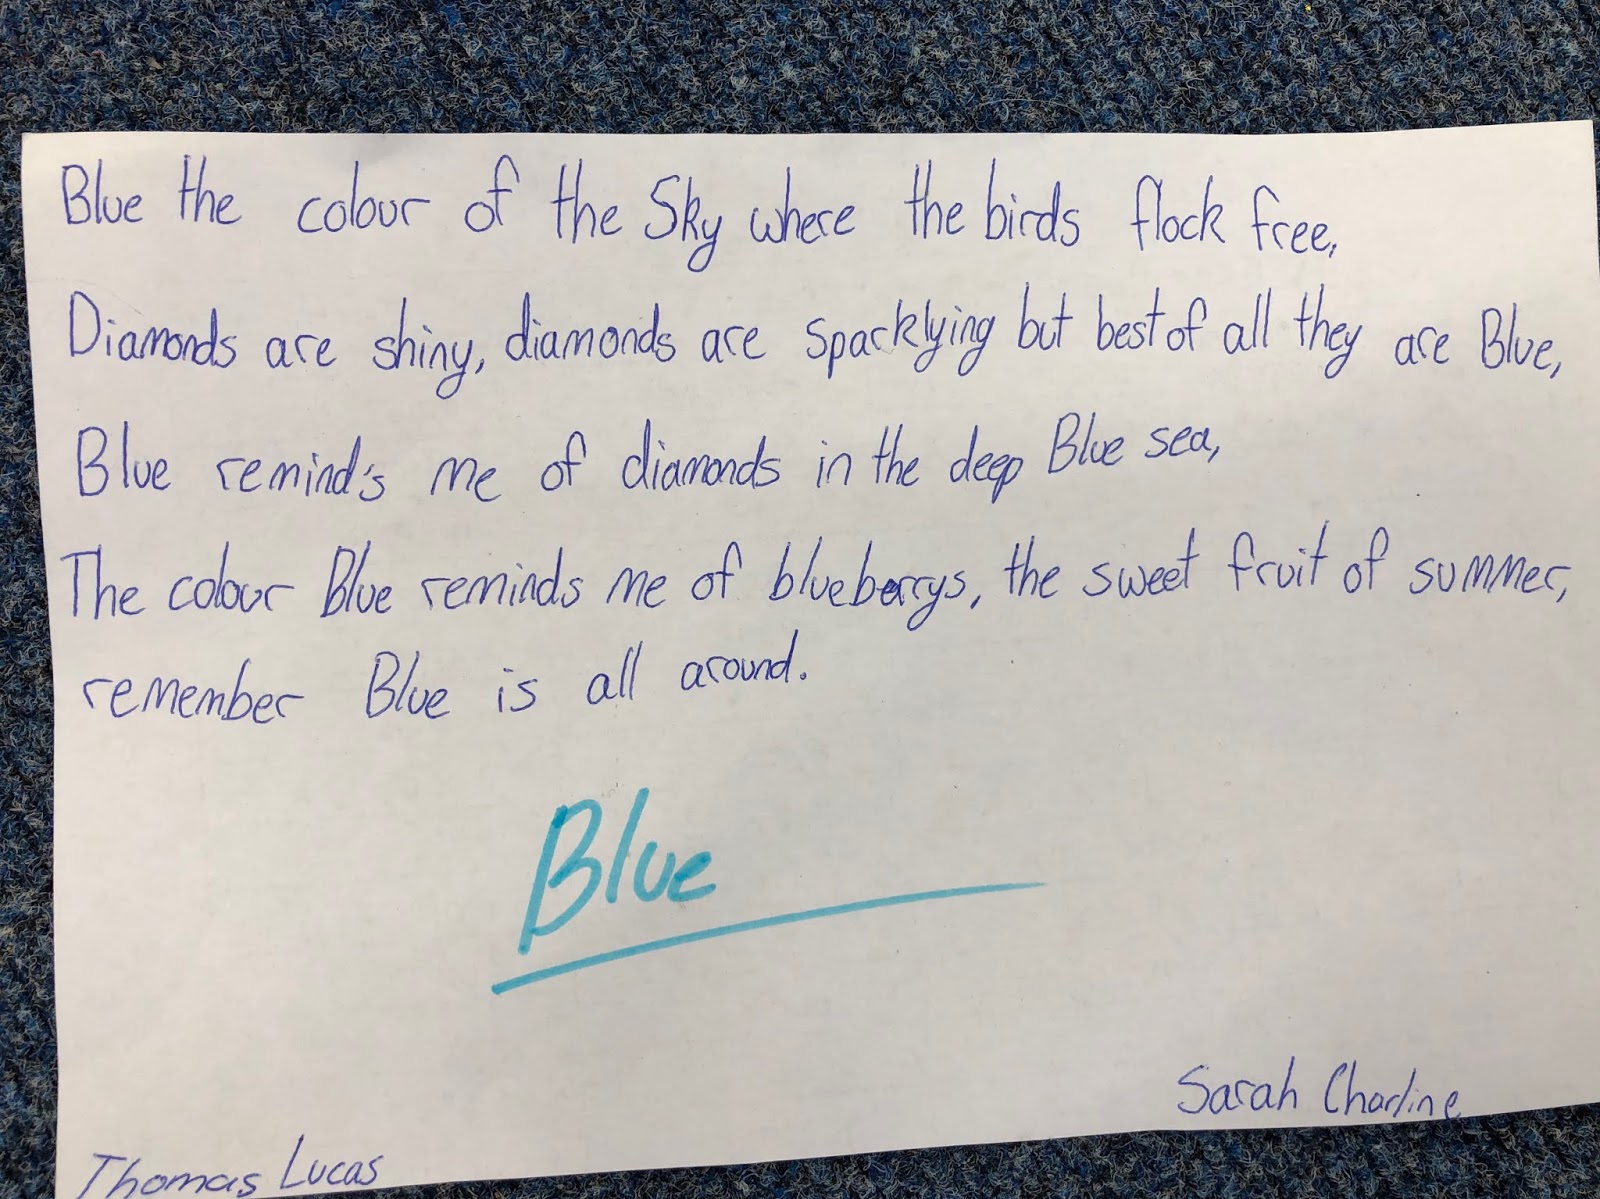 Blue the colour of the Sky where the birds flock free,
Diamonds are shiny, diamonds are spacklying but best of all they are Blue,
Blue remind's me of diamonds in the deep Blue sea,
The colour Blue reminds me of blueberrys, the sweet fruit of summer,
remember Blue is all around.
Blue
Sarah Charline
Thomas Lucas